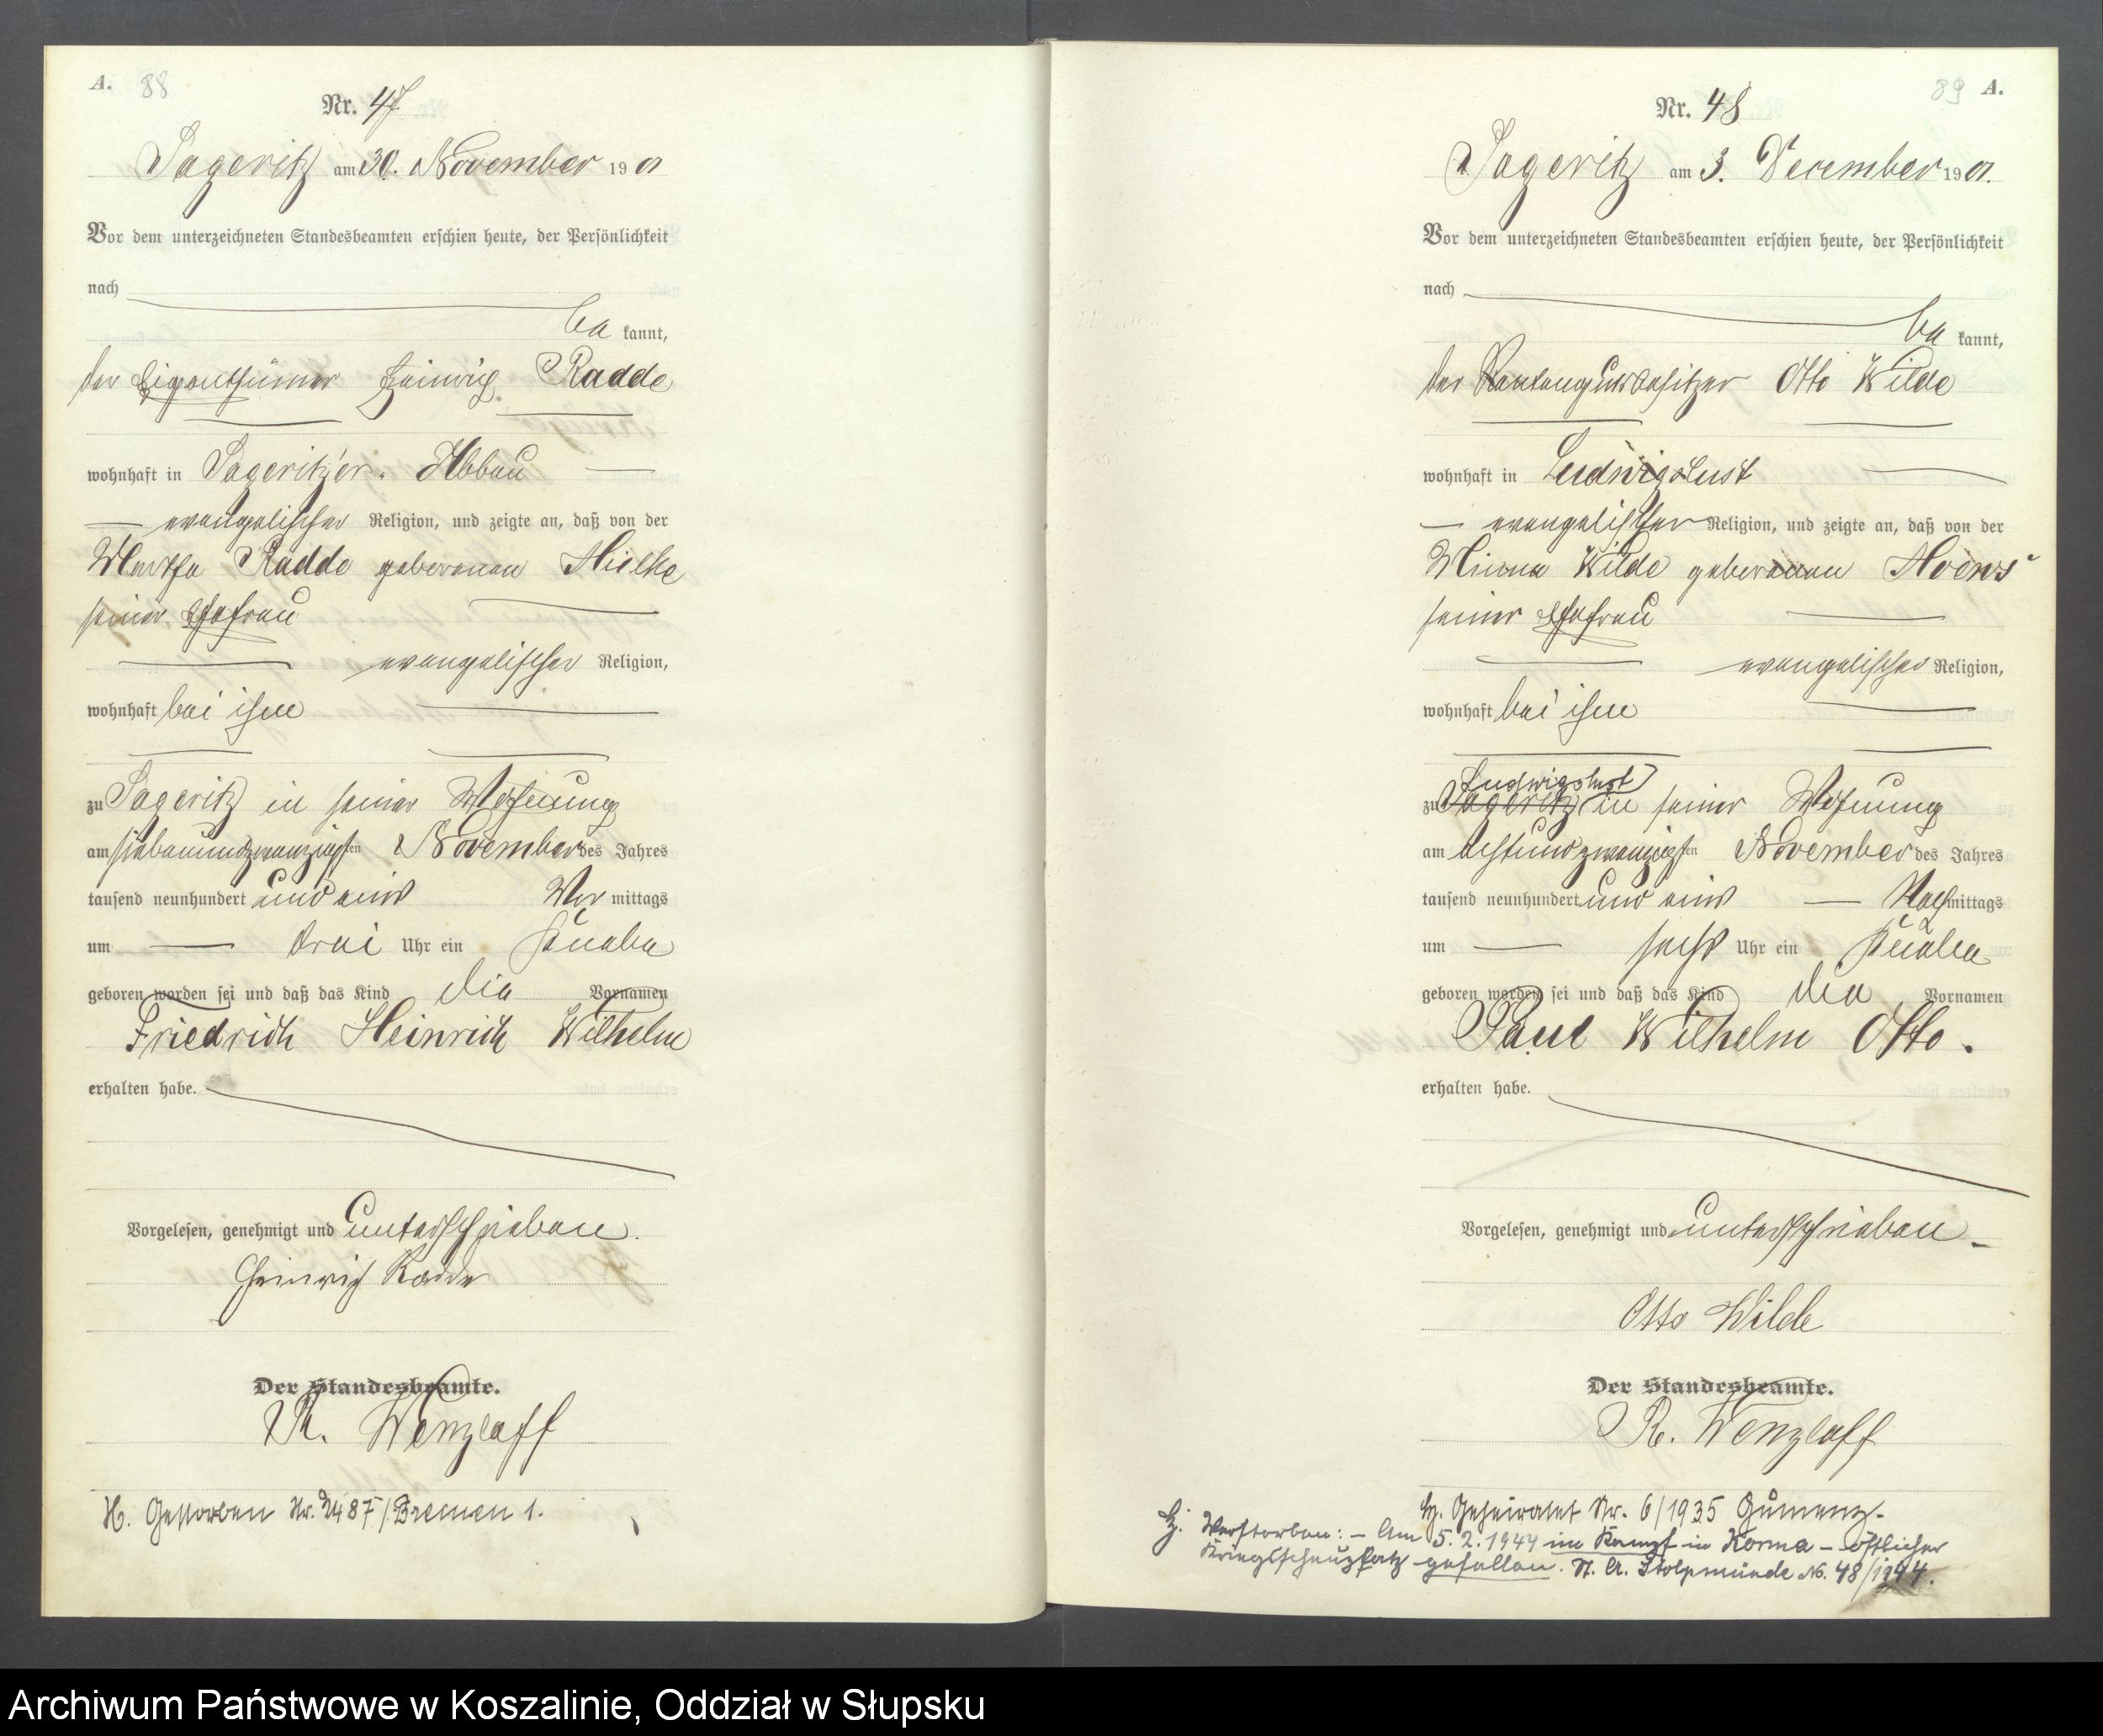 A. 88
Nr. 47
Sageritz am 30. November 1901
Vor dem unterzeichneten Standesbeamten erschien heute, der Persönlichkeit
nach
be kannt,
der Eigenthümer Heinrich Radde
wohnhaft in Sageritz'er. Abbau
evangelischer Religion, und zeigte an, daß von der
Martha Radde geborenen Mielke
seiner Ehefrau
evangelischer Religion,
wohnhaft bei ihm
zu Sageritz in seiner Wohnung
am siebenundzwanzigsten November des Jahres
tausend neunhundert und eins Vor mittags
um drei Uhr ein Knabe
geboren worden sei und daß das Kind die Vornamen
Friedrich Heinrich Wilhelm
erhalten habe.
Vorgelesen, genehmigt und unterschrieben.
Heinrich Radde
Der Standesbeamte.
R. Wenzlaff
H. Gestorben Nr. 2487/Bremen 1.
89 A.
Nr. 48
Sageritz am 3. December 1901.
Vor dem unterzeichneten Standesbeamten erschien heute, der Persönlichkeit
nach
be kannt,
der Rentengutsbesitzer Otto Wilde
wohnhaft in Ludwigslust
evangelischer Religion, und zeigte an, daß von der
Minna Wilde geborenen
seiner Ehefrau
evangelischer Religion,
wohnhaft bei ihm
Ludwigslust
zu Sageritz in seiner Wohnung
am achtundzwanzigsten November des Jahres
tausend neunhundert und eins Nachmittags
um sechs Uhr ein Knabe
geboren worden sei und daß das Kind die Vornamen
Paul Wilhelm Otto.
erhalten habe.
Vorgelesen, genehmigt und unterschrieben
Otto Wilde
Der Standesbeamte.
R. Wenzlaff
H. Geheiratet Nr. 6/1935 Gumenz.
H. Verstorben: - Am 5.2.1944 im Kampf in Korma - östlicher
Kriegsschauplatz gefallen. St. A. Stolpmünde No. 48/1944.
Archiwum Państwowe w Koszalinie, Oddział w Słupsku